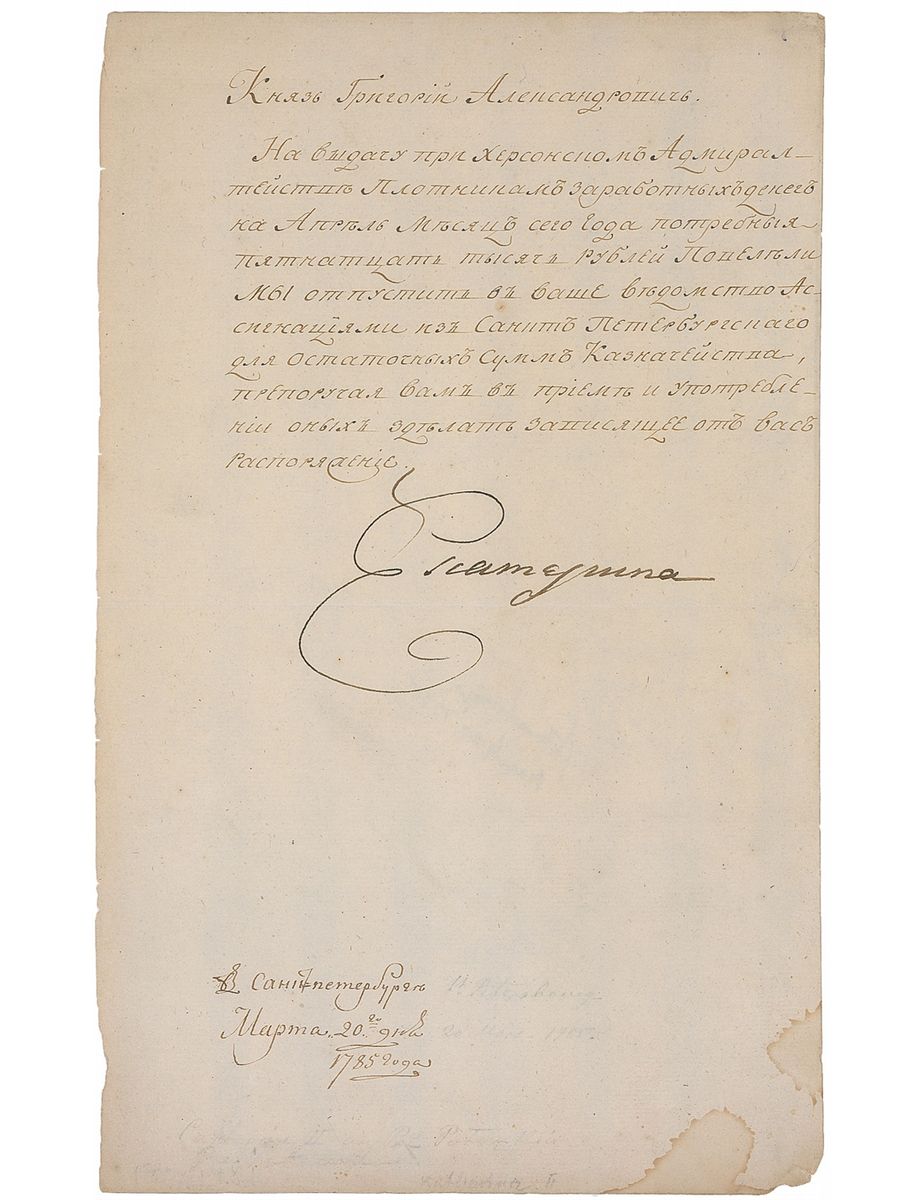 Князь Григорій Александровичъ.
На выдачу при Херсонскомъ Адмирал-
тействѣ Плотникамъ заработныхъ денегъ
на Апрѣль Мѣсяцъ сего года потребныя
пятнатцать тысячь рублей Повелѣли
МЫ отпустить въ ваше вѣдомство Ас-
сигнаціями изъ Санктъ Петербургскаго
для Остаточныхъ Суммъ Казначейства,
препоручая вамъ въ пріемѣ и употребле-
ніи оныхъ здѣлать зависящее отъ васъ
распоряженіе.
Екатерина
В Санктпетербургѣ
Марта 20го дня
1785 года